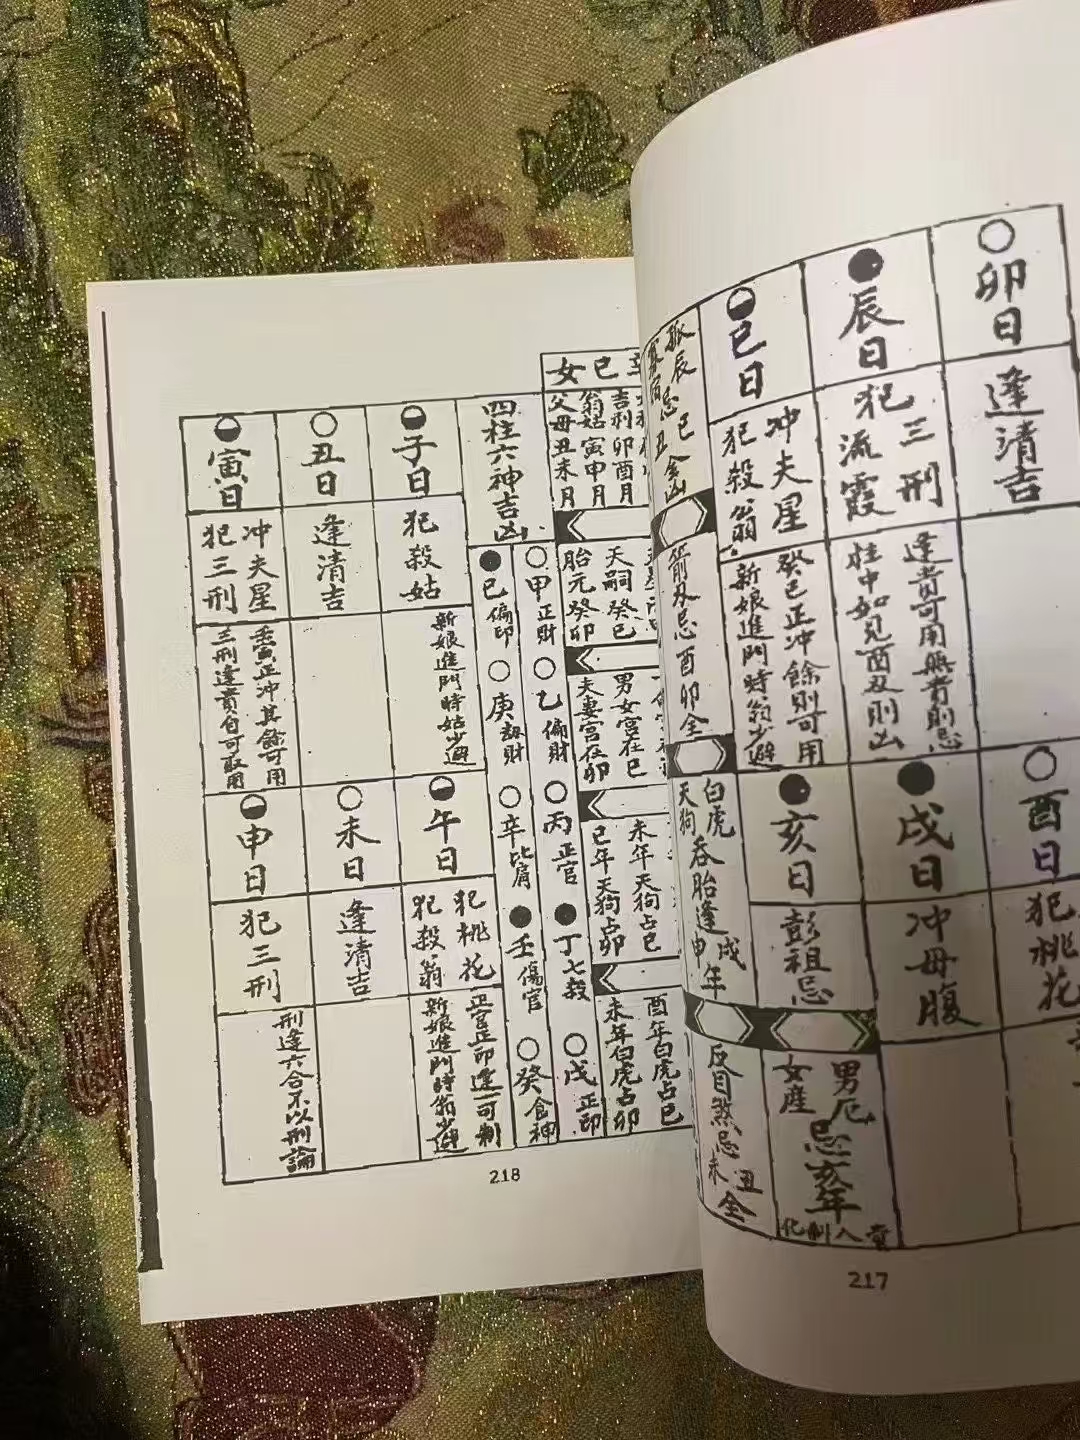 卯日
逢清吉
辰日
犯三刑
流霞
逢貴可用無貴則忌
柱中如見酉丑則凶
巳日
冲夫星
犯殺翁
癸巳正冲餘則可用
新娘進門時翁少避
酉日
犯桃花
戌日
冲母腹
亥日
彭祖忌
男厄
女產
忌亥年
孤辰忌巳全凶
寡宿忌丑
箭刃忌酉卯全
白虎
天狗
吞胎逢
戌
申年
反目煞忌
丑
未
全
217
辛巳女
吉利卯酉月
翁姑寅申月
父母丑未月
天嗣癸巳
胎元癸卯
男女宮在巳
夫妻宮在卯
未年天狗占巳
巳年天狗占卯
酉年白虎占巳
未年白虎占卯
四柱六神吉凶
甲正財
乙偏財
丙正官
丁七殺
戊正印
己偏印
庚劫財
辛比肩
壬傷官
癸食神
子日
犯殺姑
新娘進門時姑少避
丑日
逢清吉
寅日
冲夫星
犯三刑
壬寅正冲其餘可用
三刑逢貴自可取用
午日
犯桃花
犯殺翁
正官正印逢一可制
新娘進門時翁少避
未日
逢清吉
申日
犯三刑
刑逢六合不以刑論
218